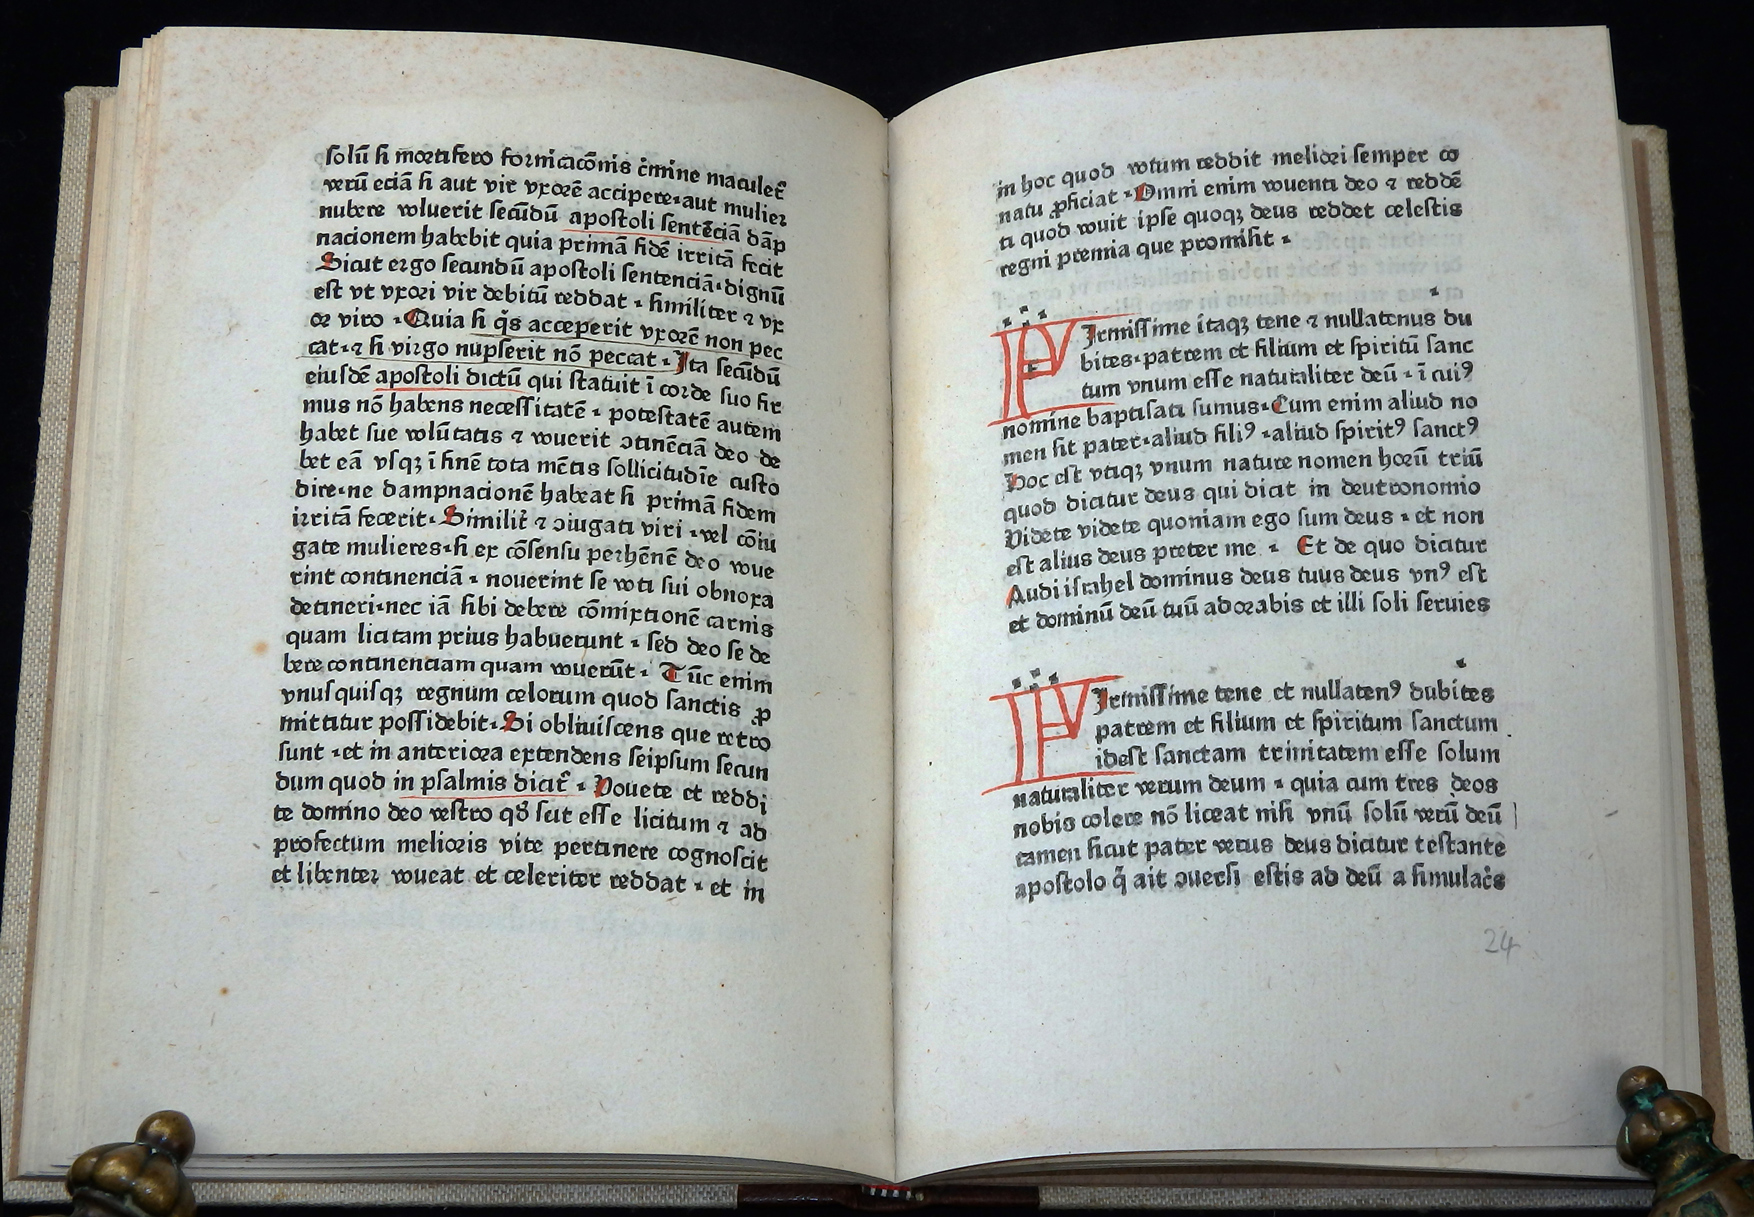 solū si mortifero fornicacōnis c̄mine maculet᷑
verū eciā si aut vir vxorē accipere·aut mulier
nubere voluerit secūdū apostoli sentēciā dāp
nacionem habebit quia primā fidē irritā fecit
Sicut ergo secundū apostoli sentenciā·dignū
est vt vxori vir debitū reddat · similiter ⁊ vx
or viro · Quia si q̄s acceperit vxorē non pec
cat·⁊ si virgo nupserit nō peccat · Ita secūdū
eiusdē apostoli dictū qui statuit ī corde suo fir
mus nō habens necessitatē · potestatē autem
habet sue volūtatis ⁊ vouerit ↄtinēciā deo de
bet eā vsqꝫ ī finē tota mētis sollicitudīe custo
dire·ne dampnacionē habeat si primā fidem
irritā fecerit · Similit᷑ ⁊ ↄiugati viri · vel cōiu
gate mulieres·si ex cōsensu perhēnē deo voue
rint continenciā · nouerint se voti sui obnoxa
detineri·nec iā sibi debere cōmixtionē carnis
quam licitam prius habuerunt · sed deo se de
bere continenciam quam vouerūt · Tūc enim
vnusquisqꝫ regnum celorum quod sanctis ꝓ
mittitur possidebit · Si obliuiscens que retro
sunt · et in anteriora extendens seipsum secun
dum quod in psalmis dicit᷑ · Vouete et reddi
te domino deo vestro qđ scit esse licitum ⁊ ad
profectum melioris vite pertinere cognoscit
et libenter voueat et celeriter reddat · et in
in hoc quod votum reddit meliori semper co
natu ꝓficiat · Omni enim vouenti deo ⁊ reddē
ti quod vouit ipse quoqꝫ deus reddet celestis
regni premia que promisit ·
Firmissime itaqꝫ tene ⁊ nullatenus du
bites·patrem et filium et spiritū sanc
tum vnum esse naturaliter deū · ī cuiꝰ
nomine baptisati sumus·Cum enim aliud no
men sit pater·aliud filiꝰ·aliud spiritꝰ sanctꝰ
Hoc est vtiqꝫ vnum nature nomen horū triū
quod dicitur deus qui dicit in deutronomio
Videte videte quoniam ego sum deus · et non
est alius deus preter me · Et de quo dicitur
Audi israhel dominus deus tuus deus vnꝰ est
et dominū deū tuū adorabis et illi soli seruies
Firmissime tene et nullatenꝰ dubites
patrem et filium et spiritum sanctum
idest sanctam trinitatem esse solum
naturaliter verum deum · quia cum tres deos
nobis colere nō liceat nisi vnū solū verū deū
tamen sicut pater verus deus dicitur testante
apostolo q̄ ait ↄuersi estis ad deū a simulac᷑s
24